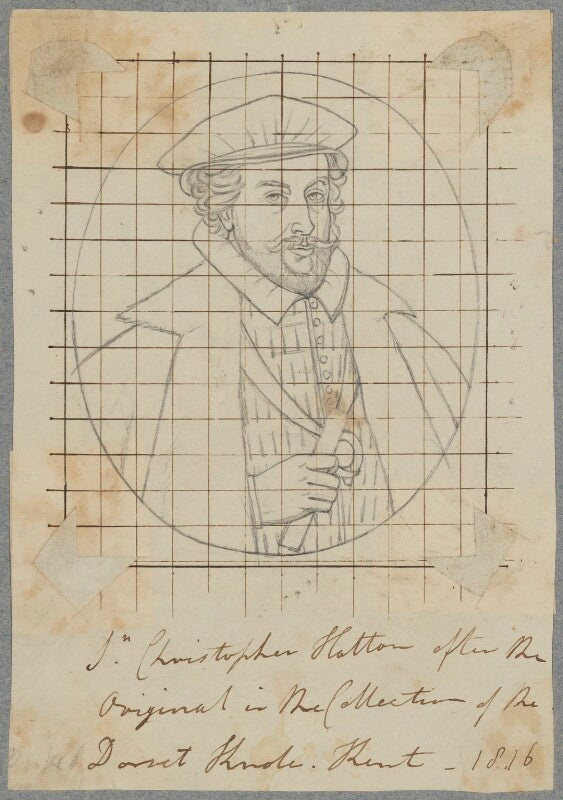 Sr. Christopher Hatton after the
Original in the Collection of the
Dorset Knole. Kent - 1816